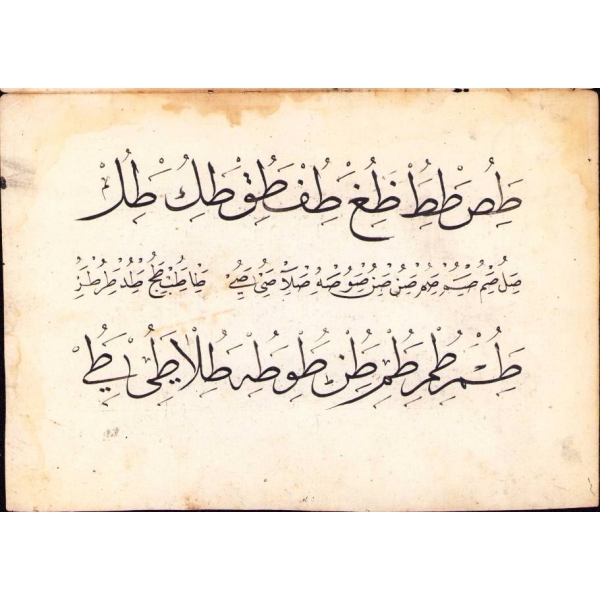 طص طط ظغ طف طق طك طل
صل صم صم صم صن صن صو صه صلا صى صے طا طب طج طد طر طز
طم طم طم طن طو طه طلا طى طے